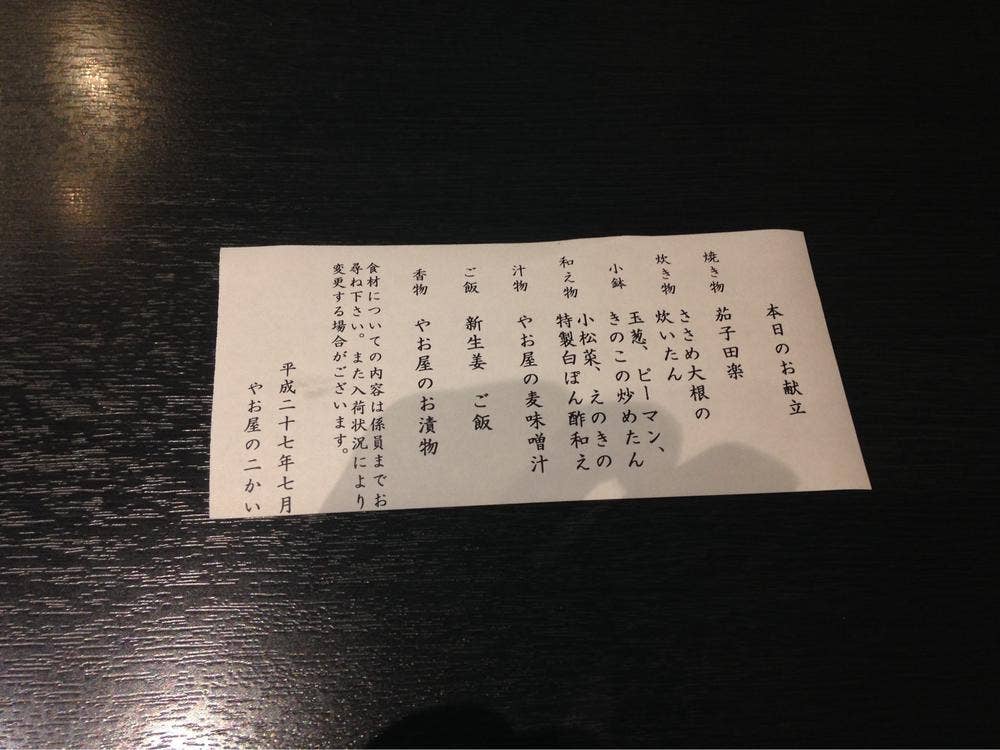 本日のお献立
焼き物 茄子田楽
炊き物 ささめ大根の
炊いたん
小鉢 玉葱、ピーマン、
きのこの炒めたん
和え物 小松菜、えのきの
特製白ぽん酢和え
汁物 やお屋の麦味噌汁
ご飯 新生姜 ご飯
香物 やお屋のお漬物
食材についての内容は係員までお
尋ね下さい。また入荷状況により
変更する場合がございます。
平成二十七年七月
やお屋の二かい